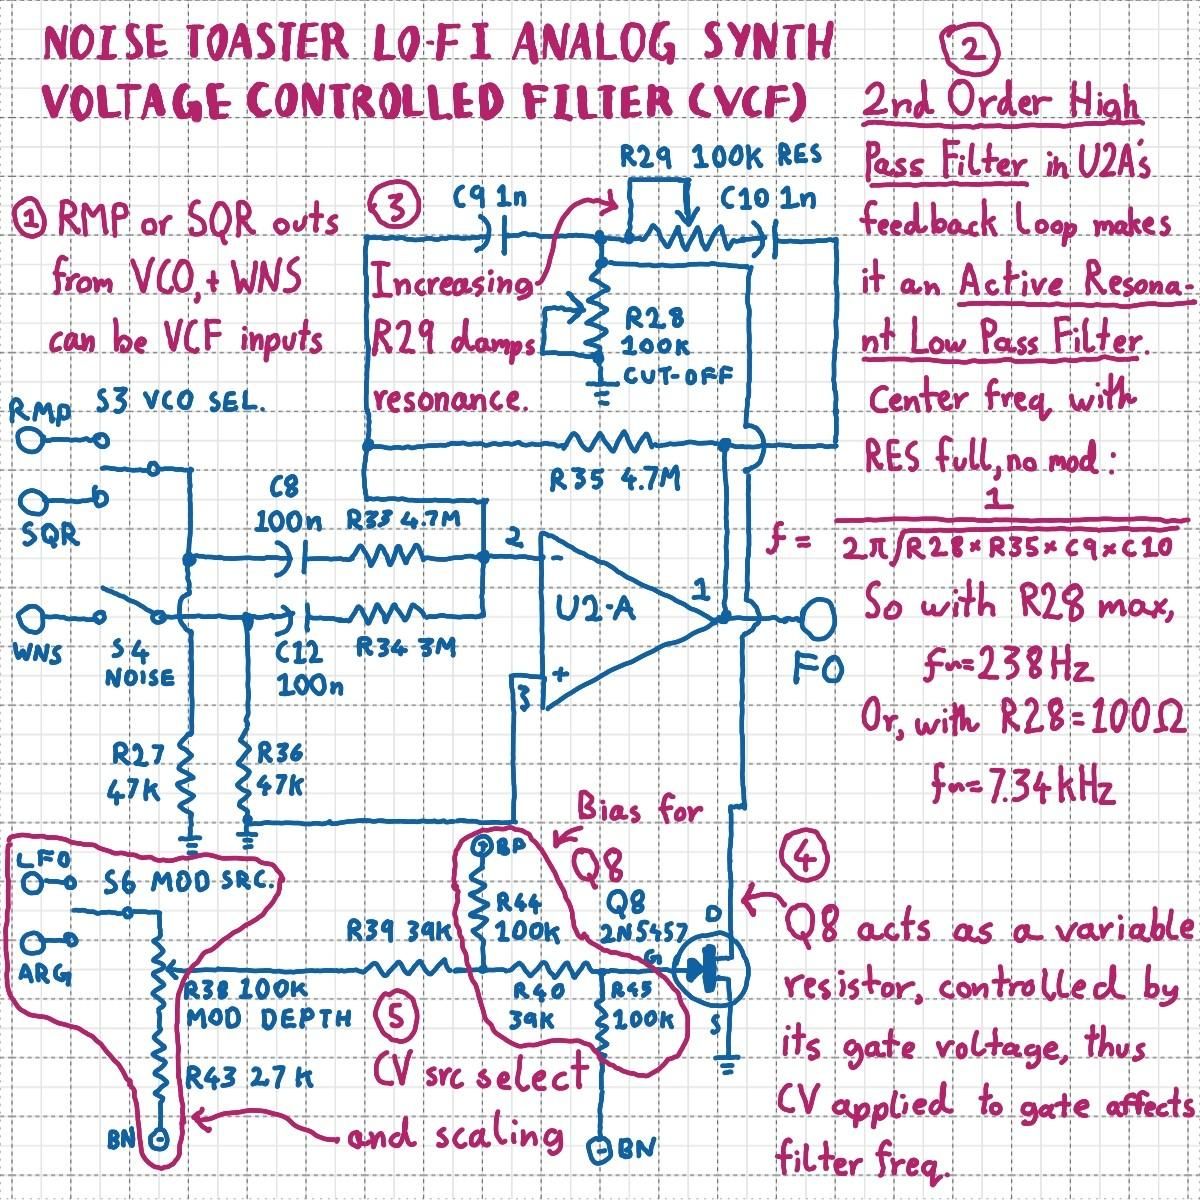 NOISE TOASTER LO-FI ANALOG SYNTH
VOLTAGE CONTROLLED FILTER (VCF)
① RMP or SQR outs
from VCO, + WNS
can be VCF inputs
②
2nd Order High
Pass Filter in U2A's
feedback loop makes
it an Active Resona-
nt Low Pass Filter.
Center freq with
RES full, no mod:
f = 1
2π√R28×R35×C9×C10
So with R28 max,
fn=238Hz
Or, with R28=100Ω
fn=7.34kHz
③
Increasing
R29 damps
resonance.
R29 100K RES
C9 1n
C10 1n
R28
100K
CUT-OFF
R35 4.7M
RMP
S3 VCO SEL.
SQR
C8
100n
R33 4.7M
2
-
U2-A
1
+
3
FO
WNS
S4
NOISE
C12
100n
R34 3M
R27
47K
R36
47K
Bias for
Q8
LFO
S6 MOD SRC.
ARG
R38 100K
MOD DEPTH
R43 27K
BN
R39 39K
BP
R44
100K
R40
39K
R45
100K
BN
Q8
2N5457
D
G
S
④
Q8 acts as a variable
resistor, controlled by
its gate voltage, thus
CV applied to gate affects
filter freq.
⑤
CV src select
and scaling